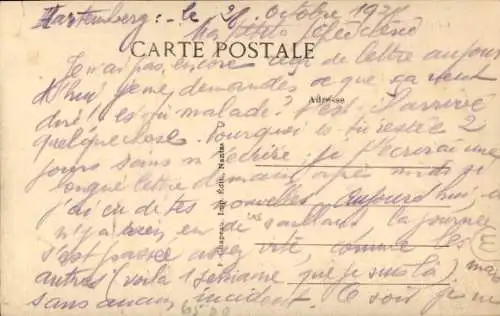 le 26 octobre 192
Ma petite
CARTE POSTALE
Je n'ai pas encore reçu de lettre aujour
d'hui je me demande ce que ça veut
dire! es-tu malade? T'est-il arrivé
Adresse
quelque chose. Pourquoi es-tu restée 2
jours sans m'écrire. je t'écrirai une
longue lettre demain après midi si
j'ai eu de tes nouvelles. aujourd'hui, il
n'y a rien eu de saillant la journée
s'est passée assez vite, comme les
autres (voilà 1 semaine que je suis là) mais
sans aucun incident. Ce soir je ne
Chapeau, Imp. Edit., Nantes